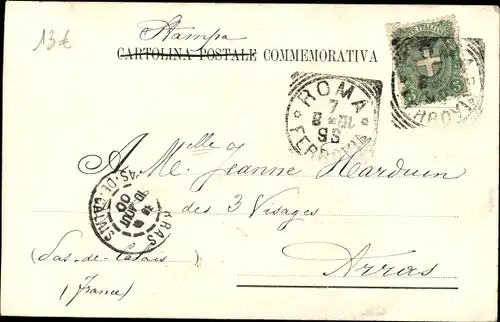 13€
Stampa
CARTOLINA POSTALE COMMEMORATIVA
ROMA
7
FERROVIA
A Mlle Jeanne Harduin
des 3 Visages
Arras
(Pas-de-Calais)
(France)
ARRAS
PAS-DE-CALAIS
10
AOUT
00